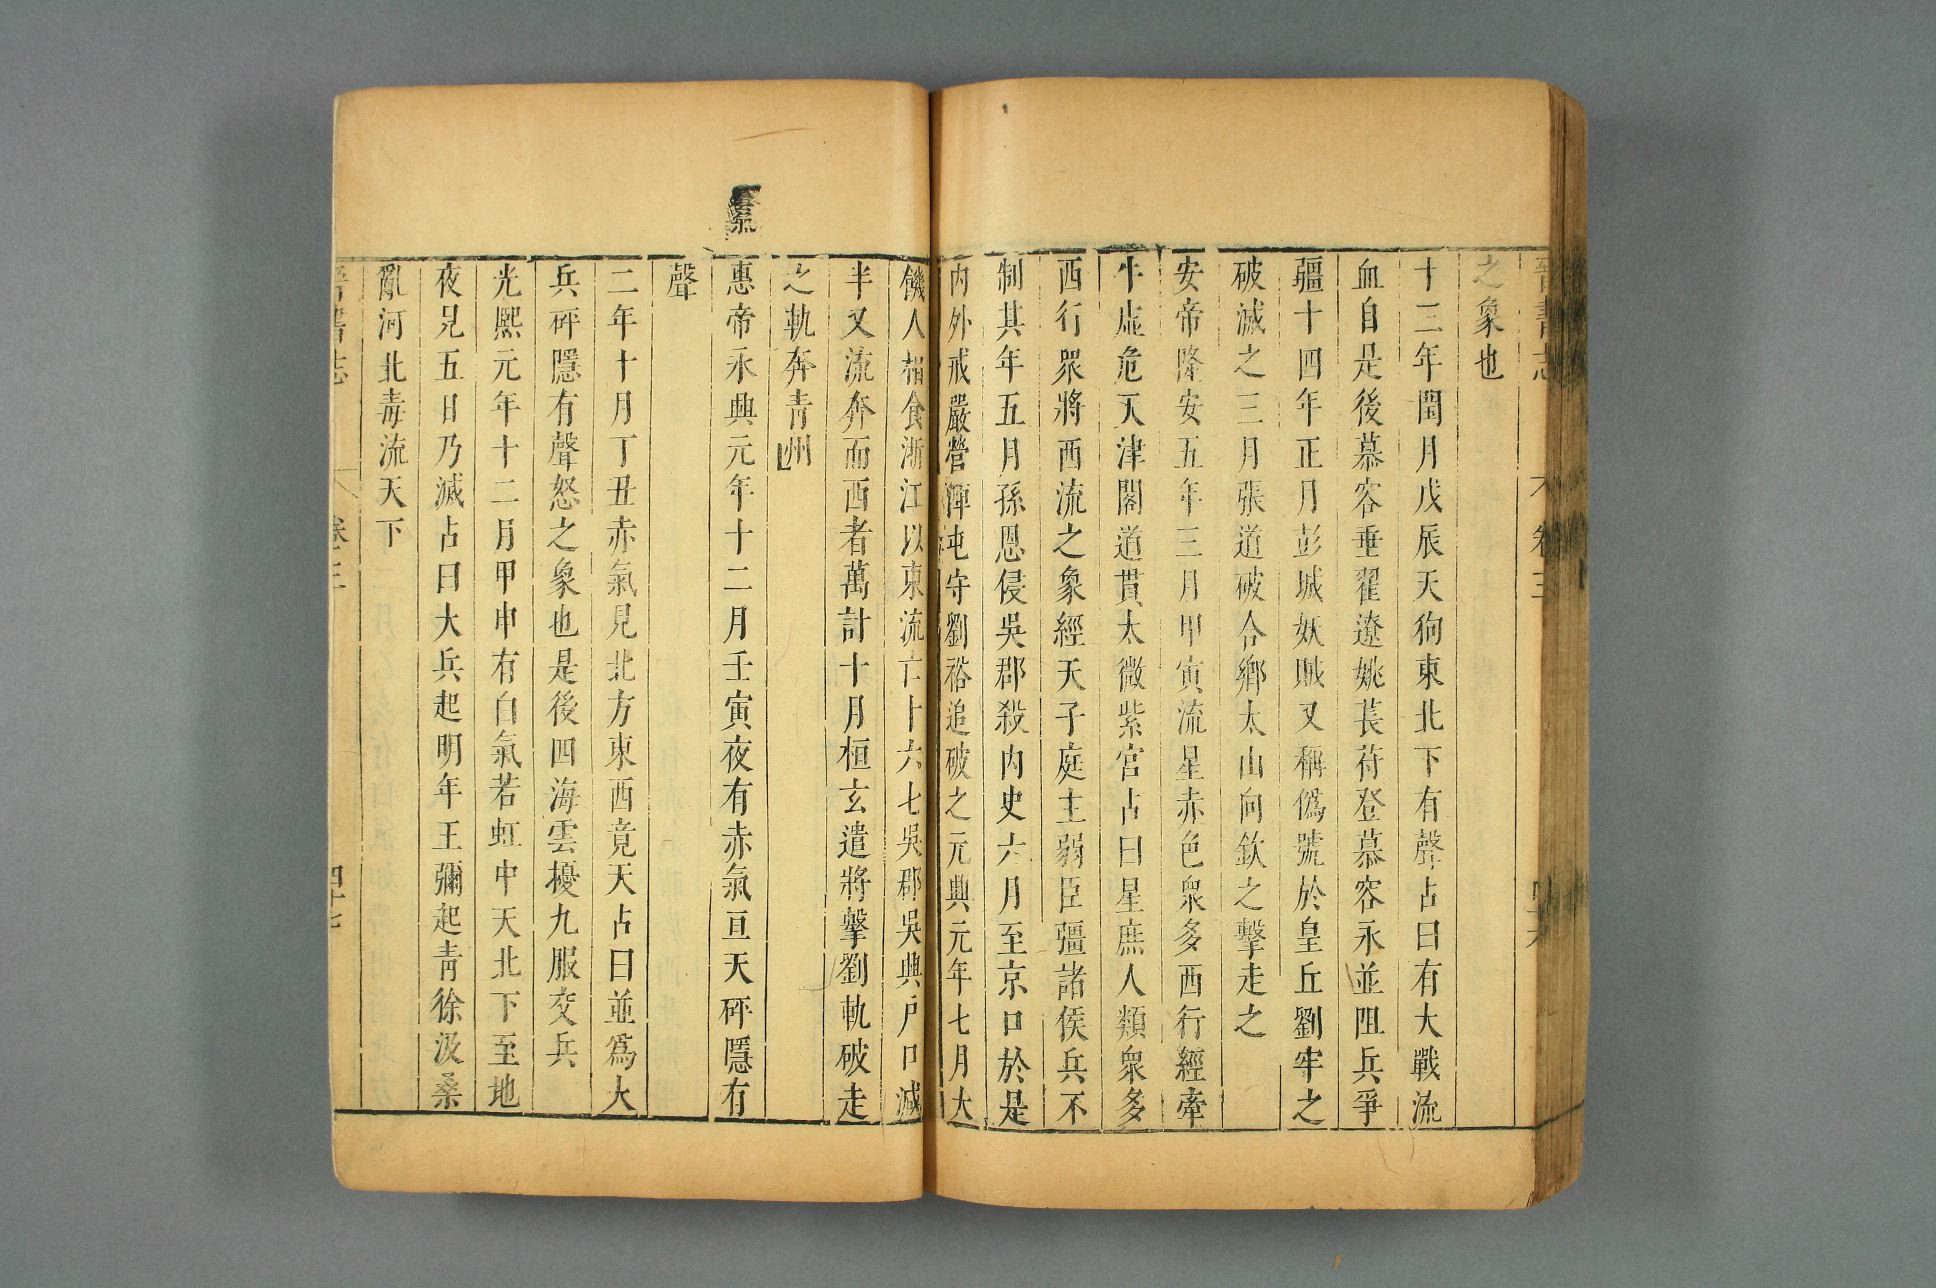 晉書志 卷三
之象也
十三年閏月戊辰天狗東北下有聲占曰有大戰流
血自是後慕容垂翟遼姚萇苻登慕容永並阻兵爭
疆十四年正月彭城妖賊又稱僞號於皇丘劉牢之
破滅之三月張道破合鄉太山向欽之擊走之
安帝隆安五年三月甲寅流星赤色衆多西行經牽
牛虛危天津閣道貫太微紫宮占曰星庶人類衆多
西行衆將西流之象經天子庭主弱臣彊諸侯兵不
制其年五月孫恩侵吳郡殺內史六月至京口於是
內外戒嚴營陣屯守劉裕追破之元興元年七月大
饑人相食浙江以東流亡十六七吳郡吳興戶口減
半又流奔而西者萬計十月桓玄遣將擊劉軌破走
之軌奔青州
雲氣
惠帝永興元年十二月壬寅夜有赤氣亘天砰隱有
聲
二年十月丁丑赤氣見北方東西竟天占曰並爲大
兵砰隱有聲怒之象也是後四海雲擾九服交兵
光熙元年十二月甲申有白氣若虹中天北下至地
夜見五日乃滅占曰大兵起明年王彌起青徐汲桑
亂河北毒流天下
晉書志 卷三 四十七